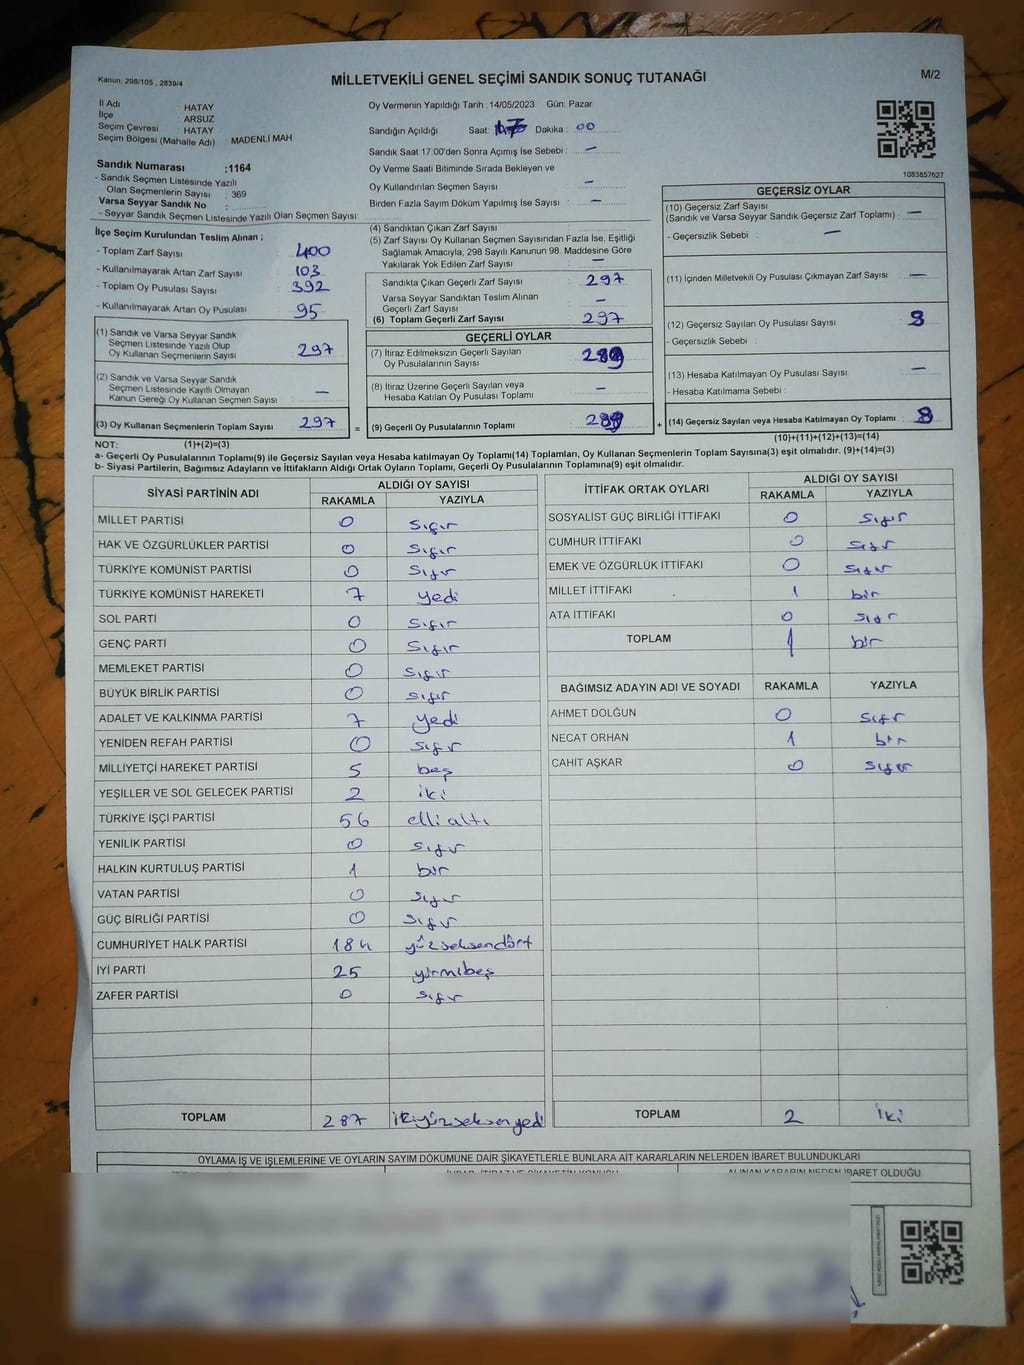 Kanun: 298/105 , 2839/4
MİLLETVEKİLİ GENEL SEÇİMİ SANDIK SONUÇ TUTANAĞI
M/2
İl Adı : HATAY
İlçe : ARSUZ
Seçim Çevresi : HATAY
Seçim Bölgesi (Mahalle Adı) : MADENLİ MAH
Sandık Numarası :1164
- Sandık Seçmen Listesinde Yazılı
Olan Seçmenlerin Sayısı : 369
Varsa Seyyar Sandık No :
- Seyyar Sandık Seçmen Listesinde Yazılı Olan Seçmen Sayısı:
Oy Vermenin Yapıldığı Tarih :14/05/2023 Gün: Pazar
Sandığın Açıldığı Saat: Dakika : 00
Sandık Saat 17:00'den Sonra Açımış İse Sebebi : —
Oy Verme Saati Bitiminde Sırada Bekleyen ve
Oy Kullandırılan Seçmen Sayısı —
Birden Fazla Sayım Döküm Yapılmış İse Sayısı : —
1083857627
İlçe Seçim Kurulundan Teslim Alınan ;
- Toplam Zarf Sayısı : 400
- Kullanılmayarak Artan Zarf Sayısı : 103
- Toplam Oy Pusulası Sayısı : 392
- Kullanılmayarak Artan Oy Pusulası : 95
(1) Sandık ve Varsa Seyyar Sandık
Seçmen Listesinde Yazılı Olup
Oy Kullanan Seçmenlerin Sayısı : 297
(2) Sandık ve Varsa Seyyar Sandık
Seçmen Listesinde Kayıtlı Olmayan
Kanun Gereği Oy Kullanan Seçmen Sayısı : —
(3) Oy Kullanan Seçmenlerin Toplam Sayısı : 297
(4) Sandıktan Çıkan Zarf Sayısı
(5) Zarf Sayısı Oy Kullanan Seçmen Sayısından Fazla İse, Eşitliği
Sağlamak Amacıyla, 298 Sayılı Kanunun 98. Maddesine Göre
Yakılarak Yok Edilen Zarf Sayısı : —
Sandıkta Çıkan Geçerli Zarf Sayısı : 297
Varsa Seyyar Sandıktan Teslim Alınan
Geçerli Zarf Sayısı : —
(6) Toplam Geçerli Zarf Sayısı : 297
GEÇERLİ OYLAR
(7) İtiraz Edilmeksizin Geçerli Sayılan
Oy Pusulalarının Sayısı : 289
(8) İtiraz Üzerine Geçerli Sayılan veya
Hesaba Katılan Oy Pusulası Toplamı : —
= (9) Geçerli Oy Pusulalarının Toplamı : 289
GEÇERSİZ OYLAR
(10) Geçersiz Zarf Sayısı
(Sandık ve Varsa Seyyar Sandık Geçersiz Zarf Toplamı) : —
- Geçersizlik Sebebi : —
(11) İçinden Milletvekili Oy Pusulası Çıkmayan Zarf Sayısı : —
(12) Geçersiz Sayılan Oy Pusulası Sayısı : 8
- Geçersizlik Sebebi :
(13) Hesaba Katılmayan Oy Pusulası Sayısı : —
- Hesaba Katılmama Sebebi :
+ (14) Geçersiz Sayılan veya Hesaba Katılmayan Oy Toplamı : 8
NOT: (1)+(2)=(3)
(10)+(11)+(12)+(13)=(14)
a- Geçerli Oy Pusulalarının Toplamı(9) ile Geçersiz Sayılan veya Hesaba katılmayan Oy Toplamı(14) Toplamları, Oy Kullanan Seçmenlerin Toplam Sayısına(3) eşit olmalıdır. (9)+(14)=(3)
b- Siyasi Partilerin, Bağımsız Adayların ve İttifakların Aldığı Ortak Oyların Toplamı, Geçerli Oy Pusulalarının Toplamına(9) eşit olmalıdır.
SİYASİ PARTİNİN ADI ALDIĞI OY SAYISI
RAKAMLA YAZIYLA
MİLLET PARTİSİ 0 sıfır
HAK VE ÖZGÜRLÜKLER PARTİSİ 0 sıfır
TÜRKİYE KOMÜNİST PARTİSİ 0 sıfır
TÜRKİYE KOMÜNİST HAREKETİ 7 yedi
SOL PARTİ 0 sıfır
GENÇ PARTİ 0 sıfır
MEMLEKET PARTİSİ 0 sıfır
BÜYÜK BİRLİK PARTİSİ 0 sıfır
ADALET VE KALKINMA PARTİSİ 7 yedi
YENİDEN REFAH PARTİSİ 0 sıfır
MİLLİYETÇİ HAREKET PARTİSİ 5 beş
YEŞİLLER VE SOL GELECEK PARTİSİ 2 iki
TÜRKİYE İŞÇİ PARTİSİ 56 elli altı
YENİLİK PARTİSİ 0 sıfır
HALKIN KURTULUŞ PARTİSİ 1 bir
VATAN PARTİSİ 0 sıfır
GÜÇ BİRLİĞİ PARTİSİ 0 sıfır
CUMHURİYET HALK PARTİSİ 184 yüzseksendört
İYİ PARTİ 25 yirmibeş
ZAFER PARTİSİ 0 sıfır
TOPLAM 287 ikiyüzseksenyedi
İTTİFAK ORTAK OYLARI ALDIĞI OY SAYISI
RAKAMLA YAZIYLA
SOSYALİST GÜÇ BİRLİĞİ İTTİFAKI 0 sıfır
CUMHUR İTTİFAKI 0 sıfır
EMEK VE ÖZGÜRLÜK İTTİFAKI 0 sıfır
MİLLET İTTİFAKI 1 bir
ATA İTTİFAKI 0 sıfır
TOPLAM 1 bir
BAĞIMSIZ ADAYIN ADI VE SOYADI RAKAMLA YAZIYLA
AHMET DOLĞUN 0 sıfır
NECAT ORHAN 1 bir
CAHİT AŞKAR 0 sıfır
TOPLAM 2 iki
OYLAMA İŞ VE İŞLEMLERİNE VE OYLARIN SAYIM DÖKÜMÜNE DAİR ŞİKAYETLERLE BUNLARA AİT KARARLARIN NELERDEN İBARET BULUNDUKLARI
ALINAN KARARIN NEDEN İBARET OLDUĞU